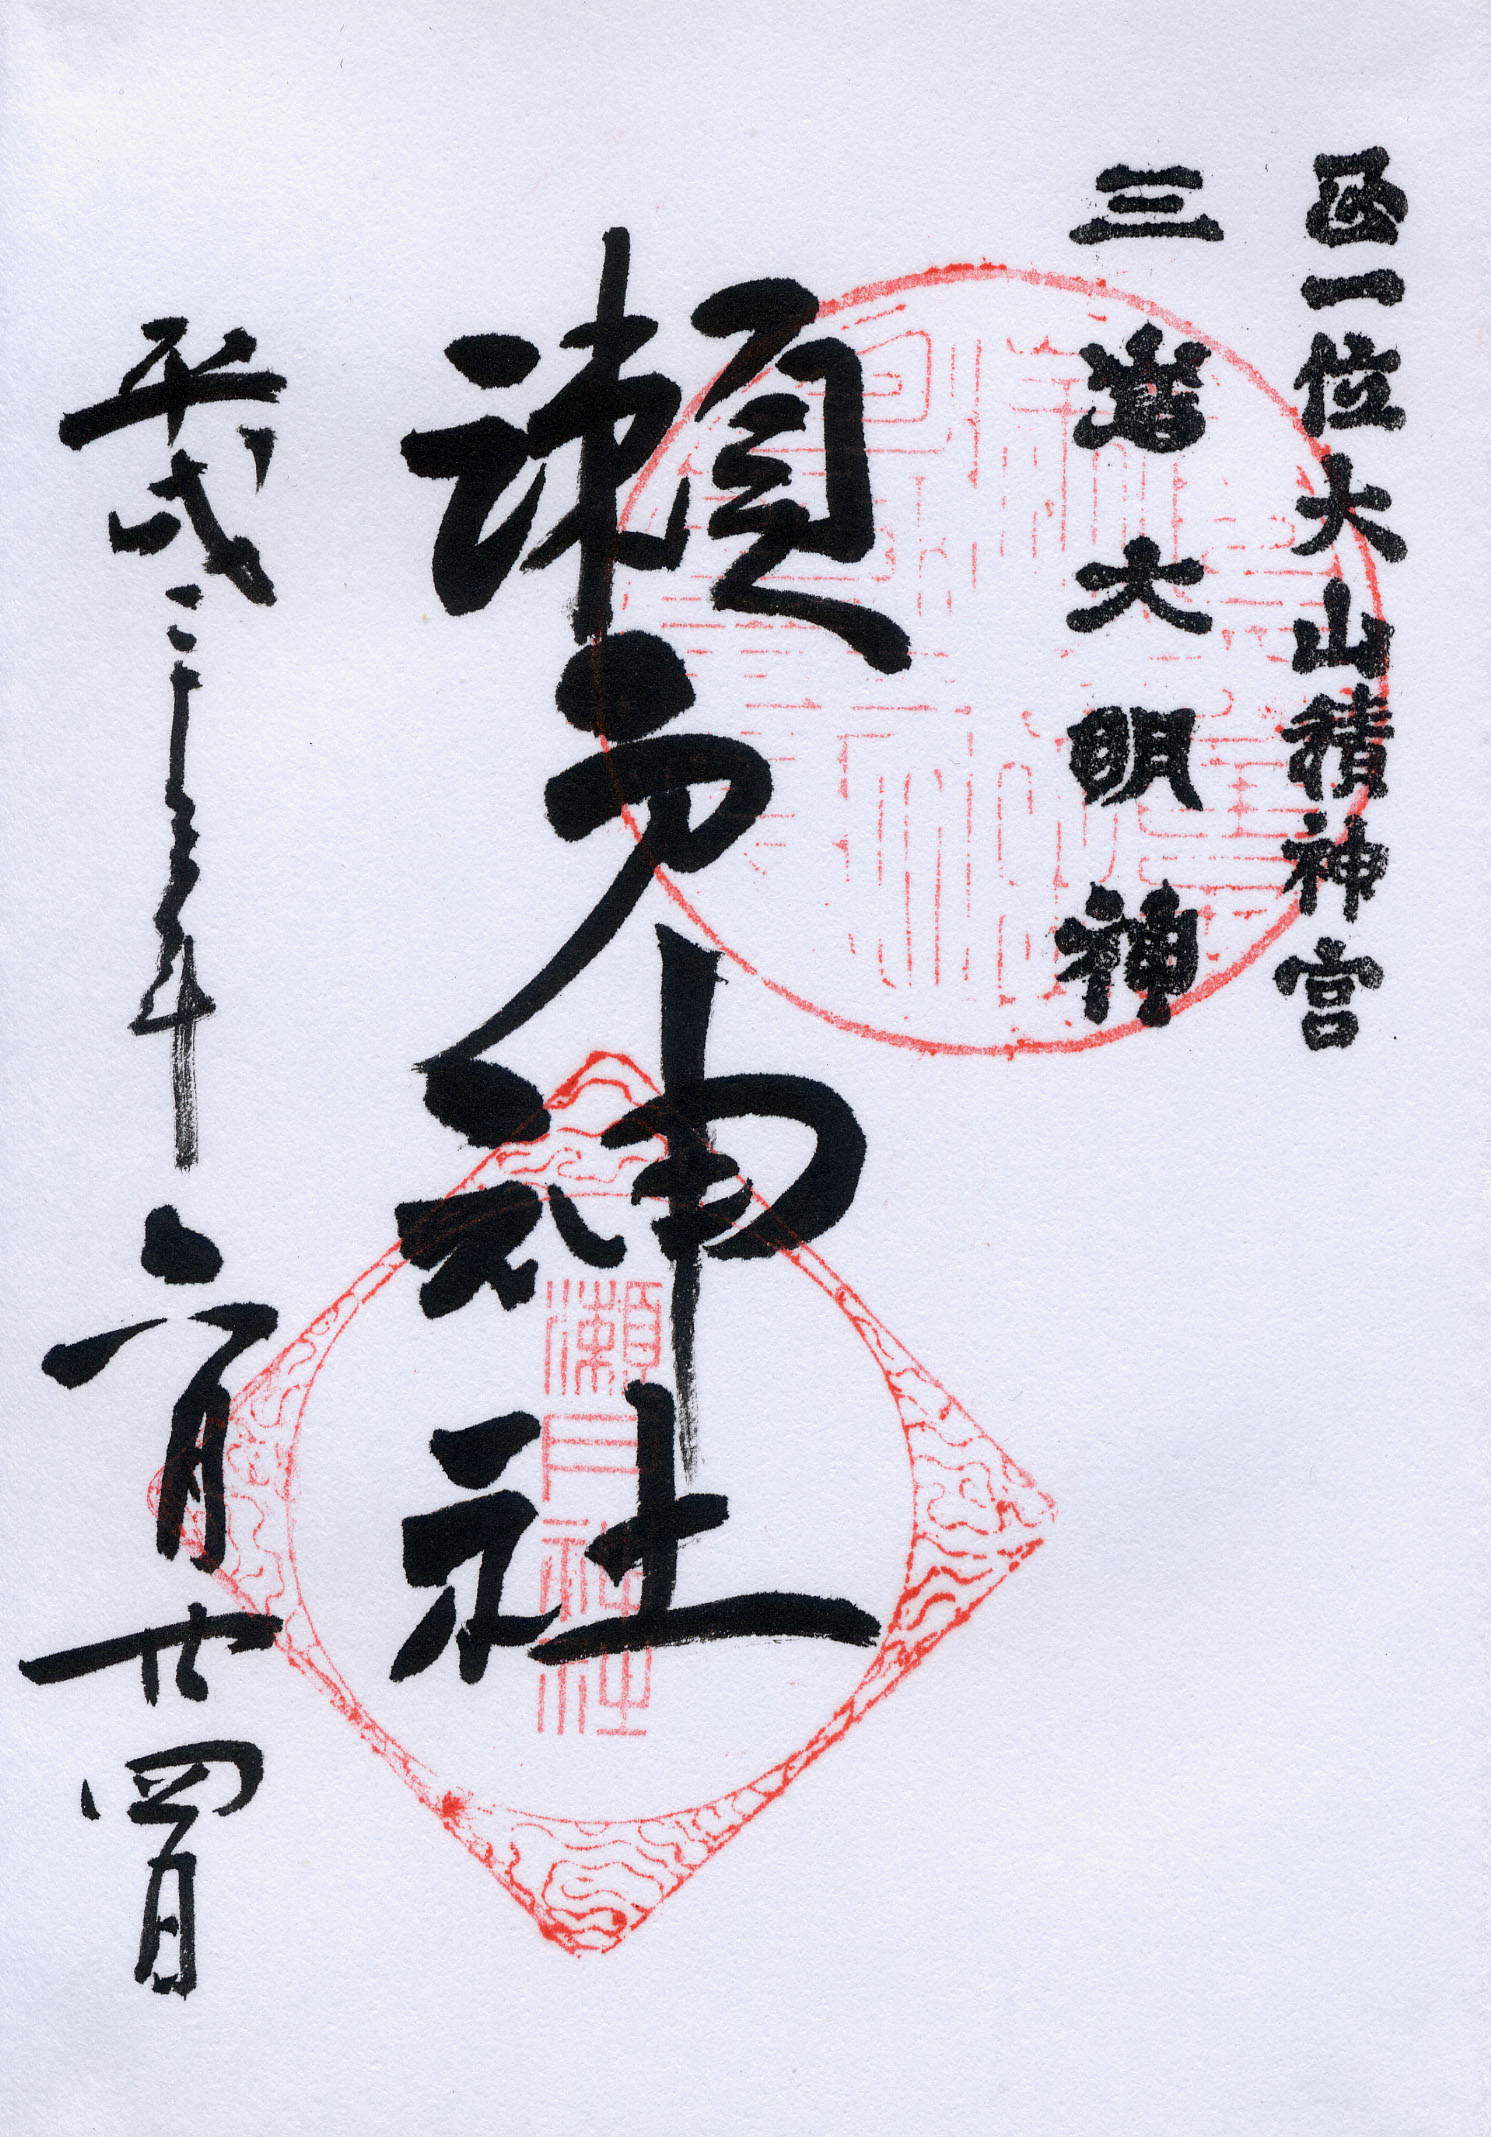 正一位大山積神宮
三嶌大明神
瀬戸神社
瀬戸神社
平成二十三年六月廿四日